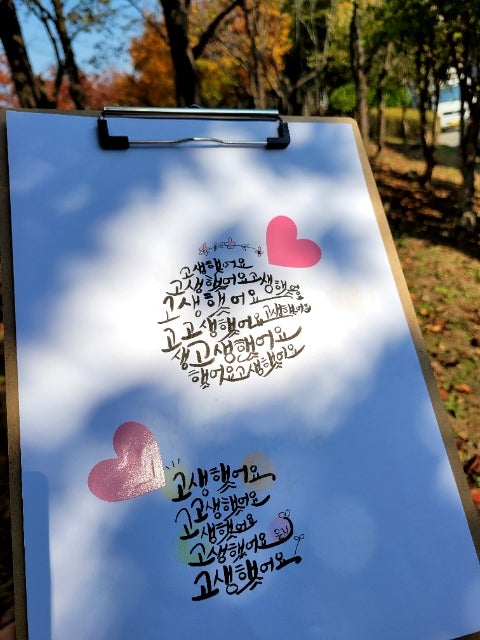 고생했어요
고생했어요고생했어요
고생했어요고생했어요
고고생했어요고생했어요
생고생했어요
했어요고생했어요
고생했어요
고고생했어요
생했어요
고생했어요
고생했어요